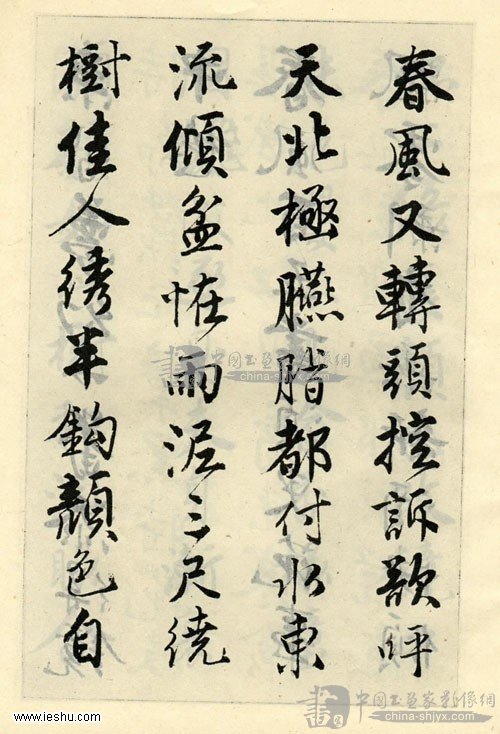 春風又轉頭控訴欲呼
天北極臙脂都付水東
流傾盆恠雨泥三尺繞
樹佳人綉半鈎顏色自
中國書畫家影像網
www.china-shjyx.com
www.ieshu.com
中國書畫家影像網
www.china-shjyx.com